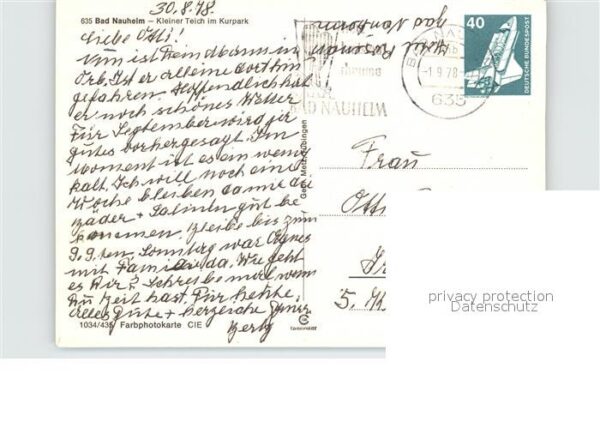 30.8.78.
635 Bad Nauheim – Kleiner Teich im Kurpark
Liebe Otti!
Nun ist Heimdbann in
Orb. Ist er alleine dorthin
gefahren. Hoffendlich hat
er noch schönes Wetter
Für September wird ja
gutes vorhergesagt. Im
Moment ist es ein wenig
kalt. Ich will noch eine
Woche bleiben da mir die
Bäder + gut be
kommen. Bleibe bis zum
9.9. ten. Sonntag war Agnes
mit Familie da. Wie geht
es Dir? Schreibe mal wenn
Du Zeit hast. Für heute
alles gute + herzliche
1034/435 Farbphotokarte CIE
Gebr. Metz Tübingen
Hotel Rosenau
Bad Nauheim
BAD NAUHEIM
-1.9.78
635
40
DEUTSCHE BUNDESPOST
Frau
Otti
5. K
privacy protection
Datenschutz